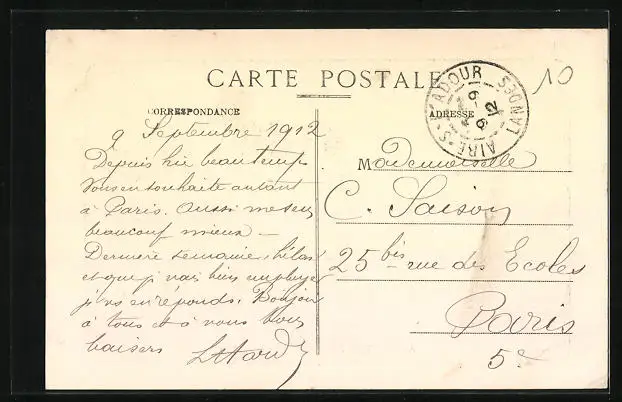 CARTE POSTALE
CORRESPONDANCE
ADRESSE
AIRE-S-L'ADOUR LANDES
9-9 12
10
9 Septembre 1912
Depuis hier beau temps
Vous en souhaite autant
à Paris. Aussi me sens
beaucoup mieux —
Dernière semaine, hélas
et que je vais bien employer
je vs en réponds. Bonjour
à tous et à vous bons
baisers
Mademoiselle
C. Saison
25 bis rue des Ecoles
Paris
5e